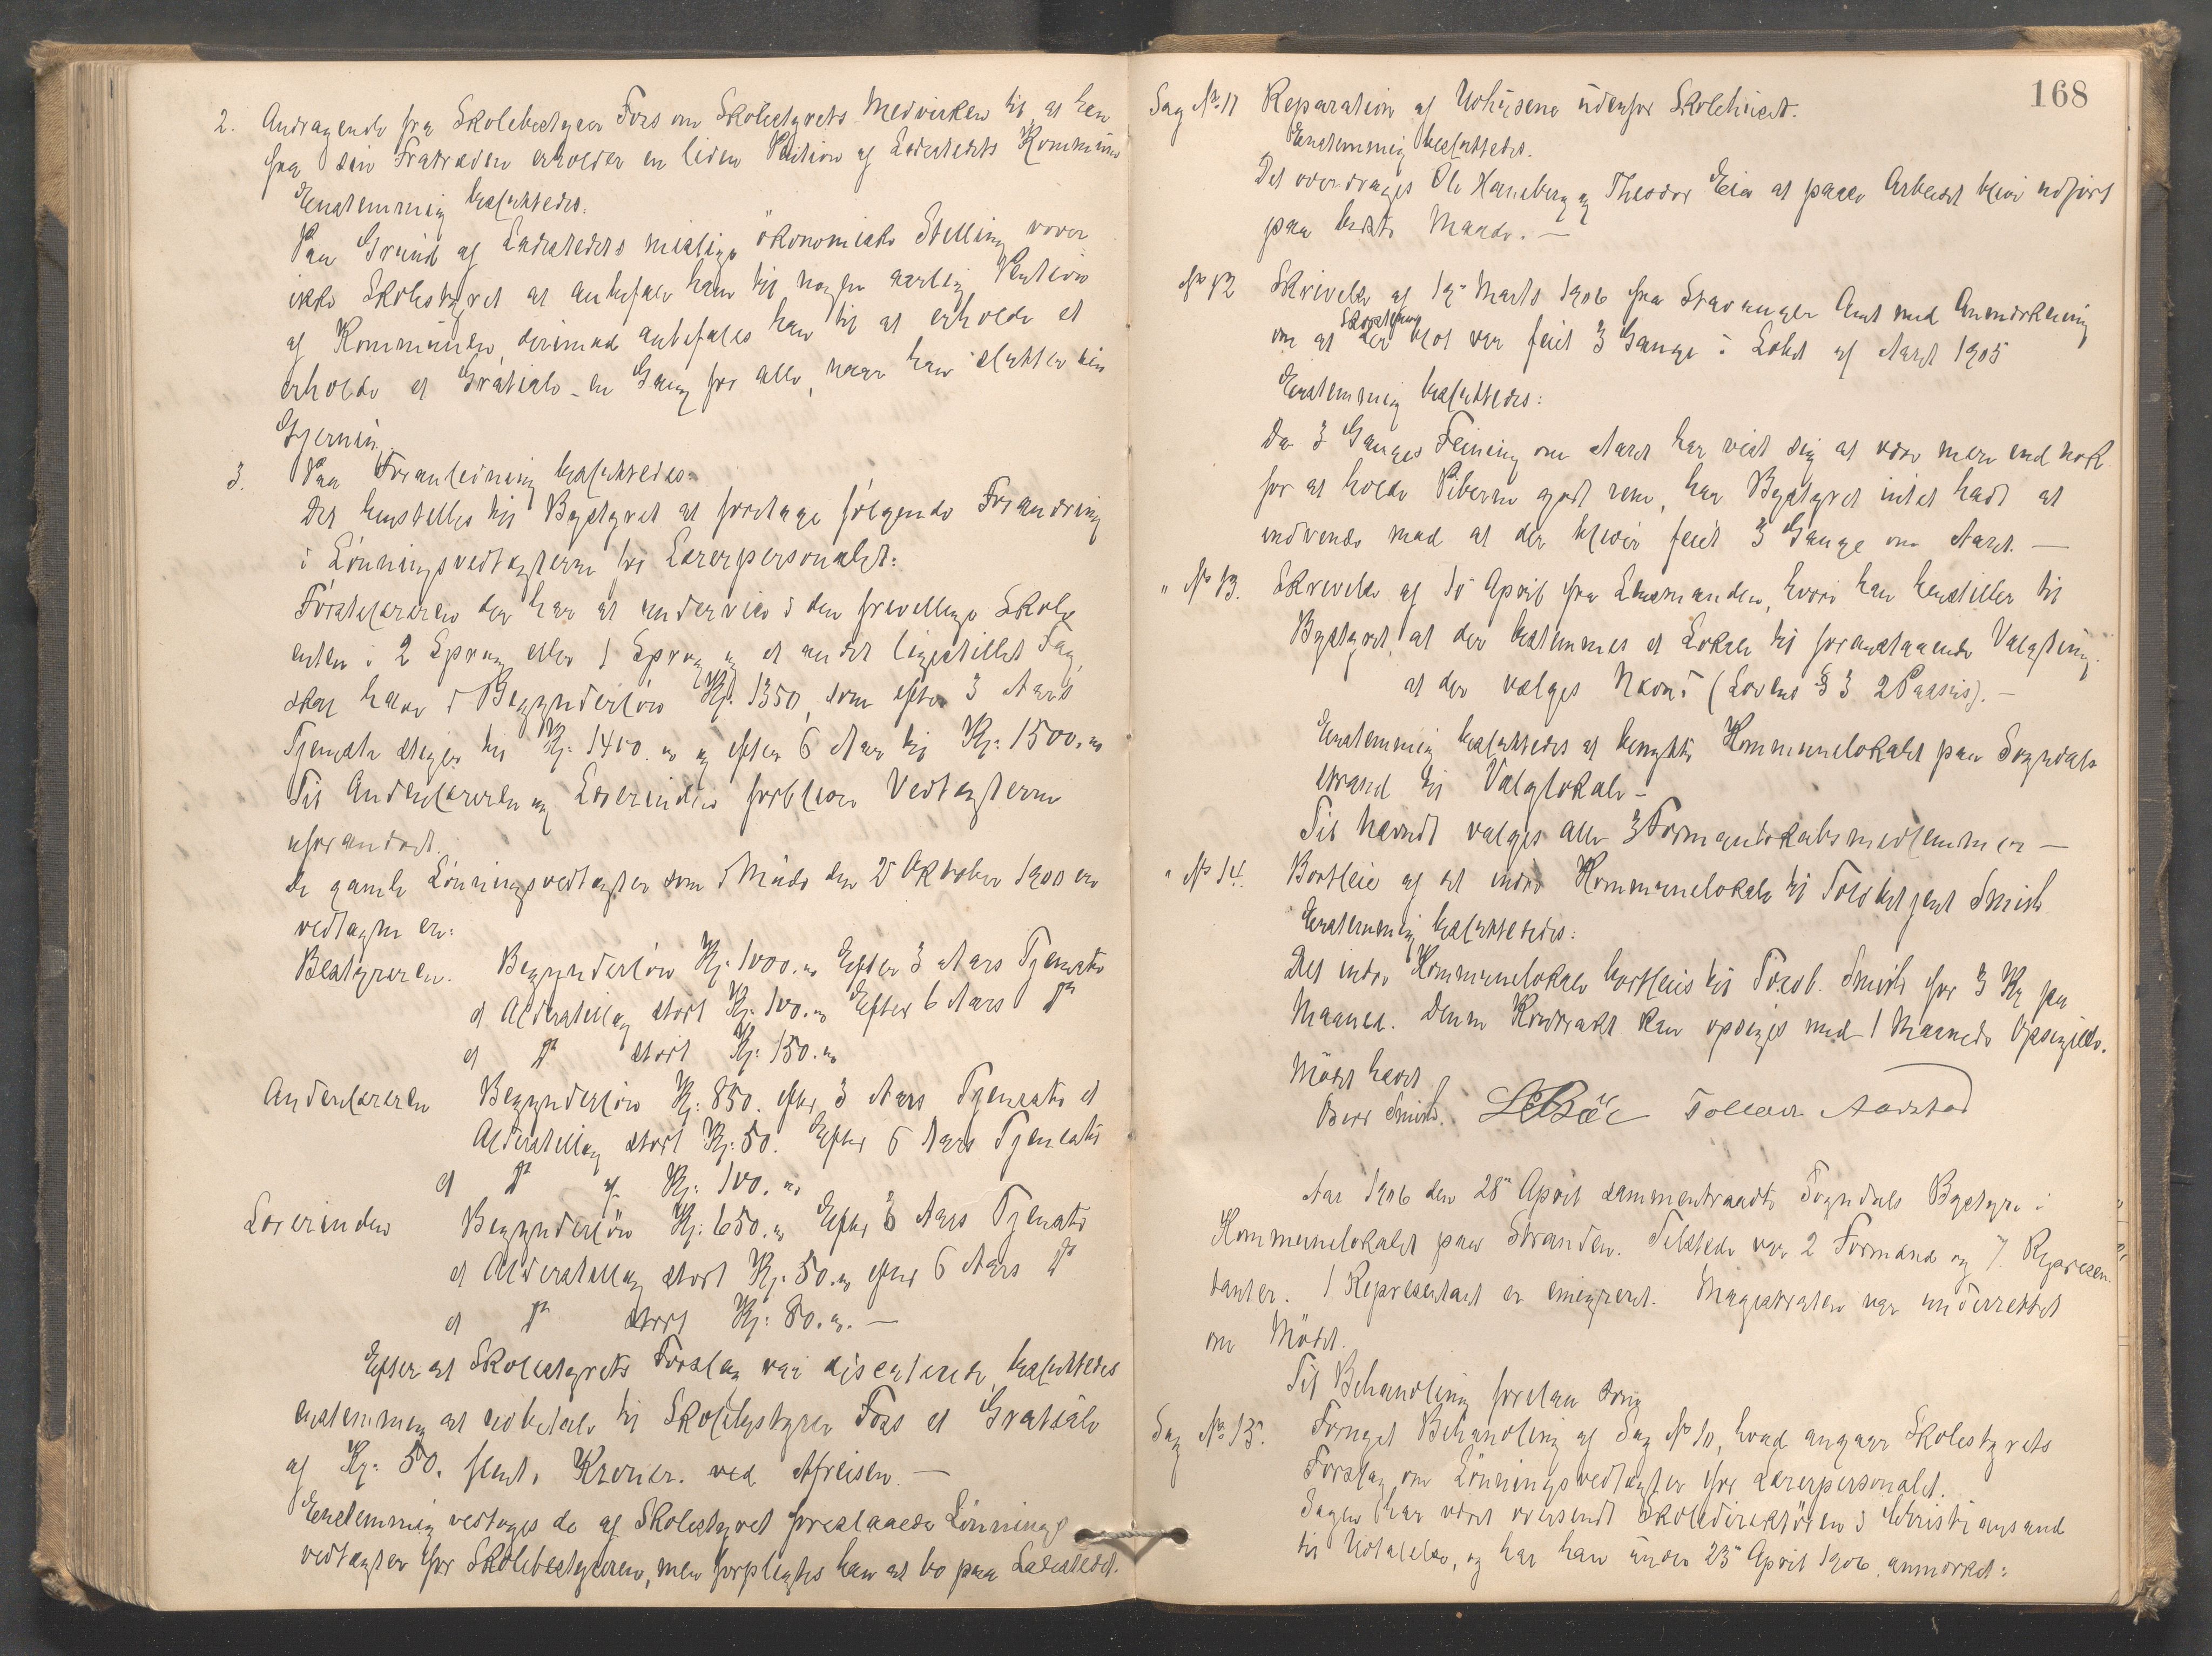 2. Andragende fra Skolebestyrer Foss om Skolestyrets Medvirken til, at han
fra sin Fratræden erholder en liden Pention af Ladestedets Kommune
Enstemmig besluttedes:
Paa Grund af Ladestedets mislige økonomiske Stilling vover
ikke Skolestyret at anbefale ham til nogen aarlig Pention
af Kommunen, derimod anbefales han til at erholde et
erholde et Gratiale en Gang for alle, naar han slutter sin
Gjerning.
3. Paa Foranledning besluttedes:
Det henstilles til Bystyret at foretage følgende Forandring
i Lønningsvedtægterne for Lærerpersonalet:
Førstelæreren der har at undervise i den frivillige Skole
enten i 2 Sprog eller 1 Sprog og et andet ligestillet Fag,
skal have i Begynderløn Kr. 1350, som efter 3 Aars
Tjeneste stiger til Kr. 1400.00 og efter 6 Aar til Kr. 1500.00
Til Andenlæreren og Lærerinden forbliver Vedtægterne
uforandret.
De gamle Lønningsvedtægter som i Møde den 25 Oktober 1900 er
vedtagne er:
Bestyreren. Begynderløn Kr. 1000.00 Efter 3 Aars Tjeneste
et Alderstillæg stort Kr. 100.00 Efter 6 Aars do
et do stort Kr. 150.00
Andenlæreren Begynderløn Kr. 850. efter 3 Aars Tjeneste et
Alderstillæg stort Kr. 50. Efter 6 Aars Tjeneste
et do af Kr. 100.00
Lærerinden Begynderløn Kr. 650.00 Efter 3 Aars Tjeneste
et Alderstillæg stort Kr. 50.00 efter 6 Aars do
et do stort Kr. 80.00. —
Efter at Skolestyrets Forslag var discuterede, besluttedes
enstemmig at udbetale til Skolebestyrer Foss et Gratiale
af Kr. 50. femti Kroner. ved Afreisen. —
Enstemmig vedtoges de af Skolestyret foreslaaede Lønnings
vedtægter for Skolebestyreren, men forpligtes han at bo paa Ladestedet.
168
Sag No. 11 Reparation af Udhusene udenfor Skolehuset.
Enstemmig besluttedes.
Det overdrages Ole Haneberg og Theodor Eia at paase Arbeidet blive udført
paa bedste Maade. —
No 12 Skrivelse af 19 Marts 1906 fra Stavanger Amt med Anmærkning
om at Skorstene der blot var feiet 3 Gange i Løbet af Aaret 1905
Enstemmig besluttedes:
Da 3 Ganges Feining om Aaret har vist sig at være mere end nok
for at holde Piberne godt rene, har Bystyret intet havt at
indvende mod at der bliver feiet 3 Gange om Aaret. —
" No 13. Skrivelse af 10 April fra Lensmanden, hvori han henstiller til
Bystyret, at der bestemmes et Lokale til forestaaende Valgthing.
at der vælges Nævn? (Lovens § 3 2 Passus). —
Enstemmig besluttedes at benytte Kommunelokalet paa Sogndals
strand til Valglokale —
Til Nævnet vælges alle 3 Formandskabsmedlemmer —
" No 14. Bortleie af et indre Kommunelokale til Toldbetjent Smith
Enstemmig besluttedes:
Det indre Kommunelokale bortleies til Toldb. Smith for 3 Kr per
Maaned. Denne Kontrakt kan opsiges med 1 Maaneds Opsigelse.
Mødet hævet
Smith. Tollak Aarstad
Aar 1906 den 28 April sammentraadte Sogndals Bystyre i
Kommunelokalet paa Stranden. Tilstede var 2 Formænd og 7 Repræsen-
tanter. 1 Representant er emigreret. Magistraten var underrettet
om Mødet.
Til Behandling forelaa Sag
Sag No. 15. Fornyet Behandling af Sag No 10, hvad angaar Skolestyrets
Forslag om Lønningsvedtægter for Lærerpersonalet.
Sagen har været oversendt Skoledirektøren i Christiansand
til Udtalelse, og har han under 25 April 1906 anmærket: